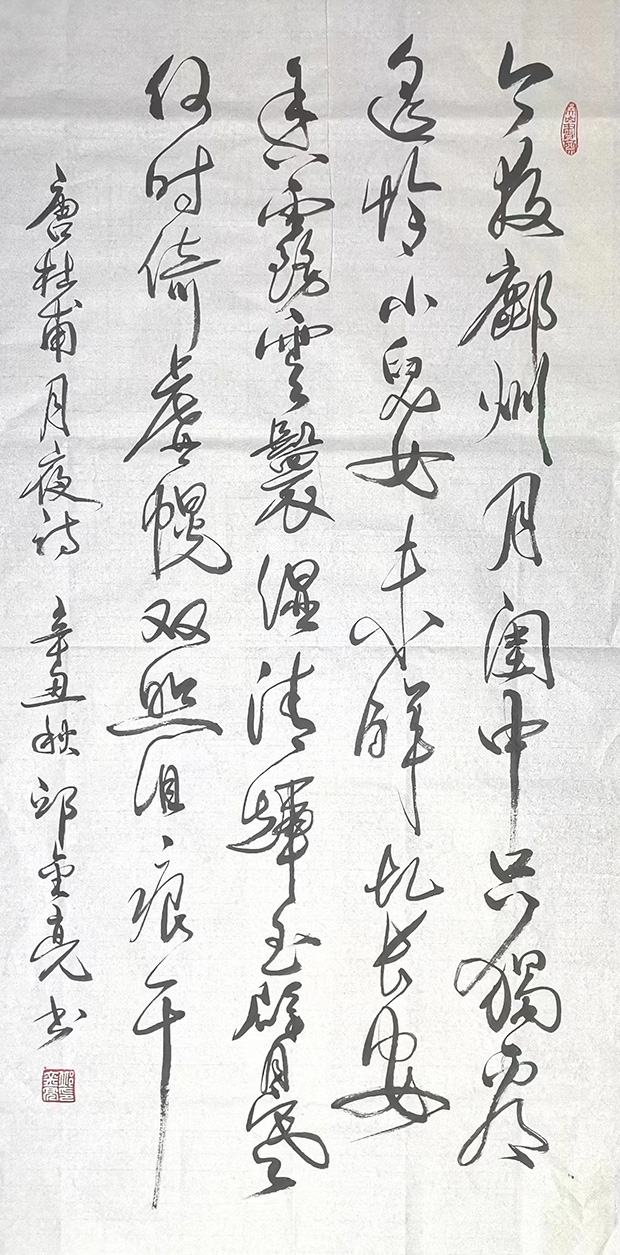 今夜鄜州月闺中只獨看
遥怜小兒女未解忆长安
香霧雲鬟湿清輝玉臂寒
何时倚虚幌双照泪痕干
唐杜甫月夜诗 辛丑秋 邱金亮书